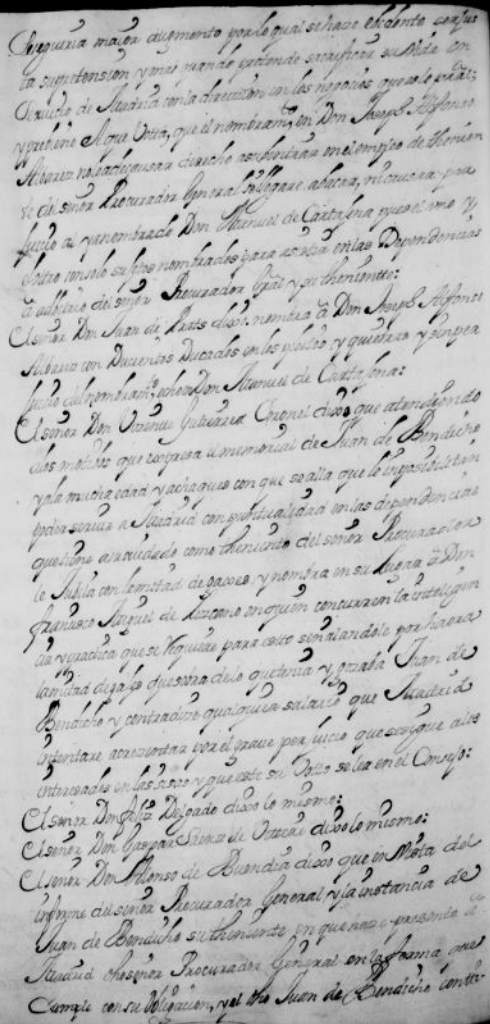 seguiria maior augmento por lo qual se haze
la supretension y mas quando pretende sacrificar su vida en
servicio de Madrid con la direccion en los negocios que se le
y prebiene el que Vota, que el nombramto en Don Joseph Alfonso
Alborez no le ade causar derecho a subentrar en el empleo de thenien
te del señor Procurador General si llegare abacar, ni causar per
juicio al ya nombrado Don Manuel de Cartajena pues el uno y
el otro con solo sujetos nombrados para asistir en las Dependencias
a advitrio del señor Procurador Gral y su theniente:
El señor Don Juan de Prats dixo nombra â Don Joseph Alfonso
Alborez con Ducientos Ducados en los efectos y sin per
juicio del nombramto echo a Don Manuel de Cartajena:
El señor Don Vizente Gutierrez Coronel dixo que atendiendo
a los motibos que expresa el memorial de Juan de Bendicho
y a la mucha edad y achaques con que se alla que le inposibilitan
poder servir a Madrid con puntualidad en las dependencias
que tiene a su cuidado como theniente del señor Procurador
le Jubila con la mitad de gaxes, y nombra en su lugar â Don
francisco Miguel de Lizcano en quien concurren la intelijen
cia y practica que se requiere para esto señalandole por haora
la mitad de gajes que sobra de lo que tenia y gozaba Juan de
Bendicho y contradixo qualquiera salario que Madrid
intentare acrezentar por el grave perjuicio que se sigue a los
interesados en las sisas y que este su Voto se lea en el Consejo:
El señor Don feliz Delgado dixo lo mismo:
El señor Don Gaspar Saenz de dixo lo mismo:
El señor Don Alfonso de Buendia dixo que en Vista del
informe del señor Procurador General y la instancia de
Juan de Bendicho su theniente en que haze presente â
Madrid dho señor Procurador General en la forma que
Cumple con su obligacion, y el dho Juan de Bendicho conti-